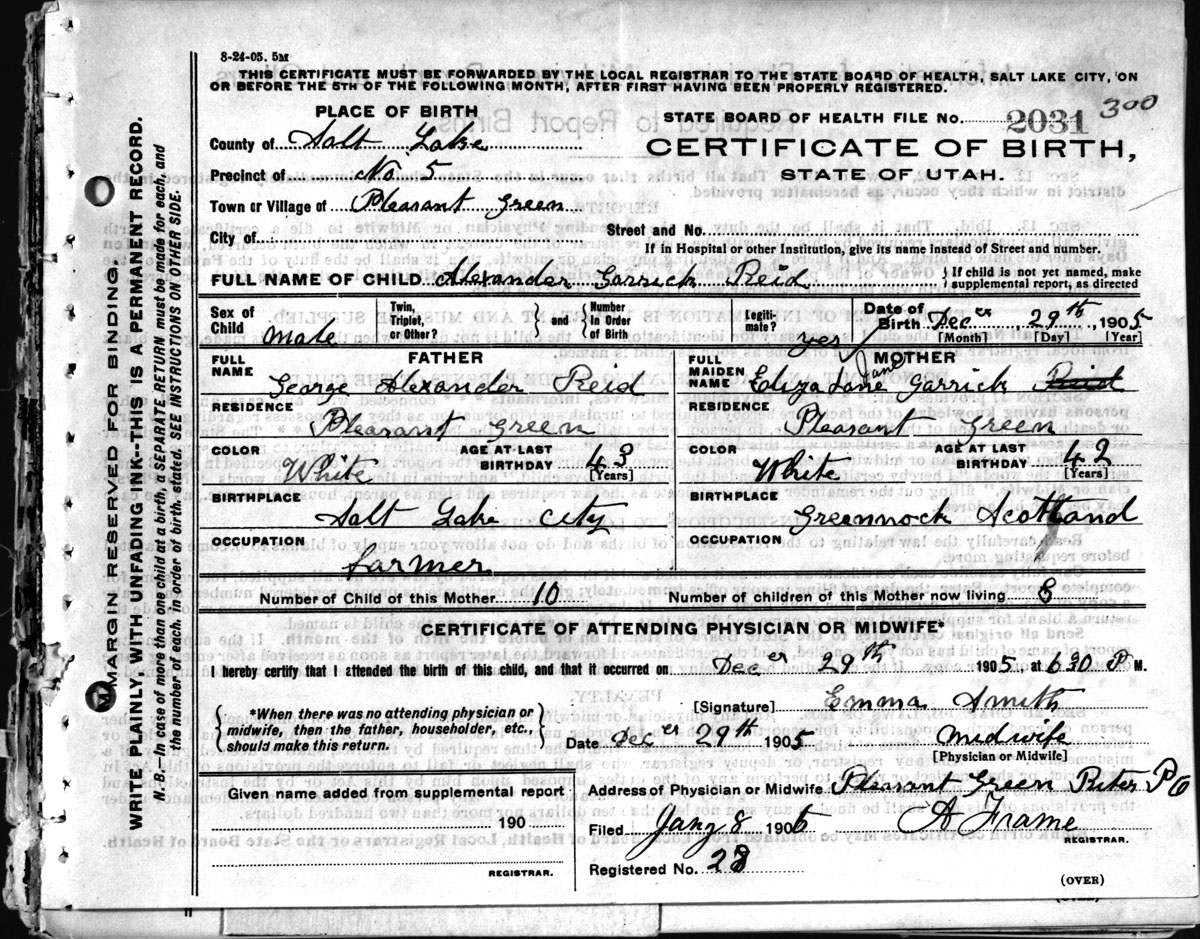 8-24-05. 5M
THIS CERTIFICATE MUST BE FORWARDED BY THE LOCAL REGISTRAR TO THE STATE BOARD OF HEALTH, SALT LAKE CITY, ON
OR BEFORE THE 5TH OF THE FOLLOWING MONTH, AFTER FIRST HAVING BEEN PROPERLY REGISTERED.
300
PLACE OF BIRTH
STATE BOARD OF HEALTH FILE No. 2031
County of Salt Lake
CERTIFICATE OF BIRTH,
Precinct of No 5
STATE OF UTAH.
Town or Village of Pleasant Green
City of
Street and No.
If in Hospital or other Institution, give its name instead of Street and number.
FULL NAME OF CHILD Alexander Garrick Reid
{ If child is not yet named, make
supplemental report, as directed
Sex of Child Male
Twin, Triplet, or Other? } and { Number in Order of Birth
Legiti-mate? yes
Date of Birth Decer 29th 1905
[Month] [Day] [Year]
FATHER
MOTHER
FULL NAME George Alexander Reid
FULL MAIDEN NAME Eliza Jane Jane Garrick Reid
RESIDENCE Pleasant Green
RESIDENCE Pleasant Green
COLOR White AGE AT LAST BIRTHDAY 43 [Years]
COLOR White AGE AT LAST BIRTHDAY 42 [Years]
BIRTHPLACE Salt Lake City
BIRTHPLACE Greennock Scotland
OCCUPATION farmer
OCCUPATION
Number of Child of this Mother 10
Number of children of this Mother now living 8
CERTIFICATE OF ATTENDING PHYSICIAN OR MIDWIFE*
I hereby certify that I attended the birth of this child, and that it occurred on Decer 29th 1905 at 630 P M.
{ *When there was no attending physician or
midwife, then the father, householder, etc.,
should make this return. }
[Signature] Emma Smith
Date Decer 29th 1905 Midwife
[Physician or Midwife]
Given name added from supplemental report
190
REGISTRAR.
Address of Physician or Midwife Pleasant Green Riter P O
Filed Jany 8 1906 A Frame
REGISTRAR.
Registered No. 28
(OVER)
MARGIN RESERVED FOR BINDING
WRITE PLAINLY, WITH UNFADING INK--THIS IS A PERMANENT RECORD.
N. B.—In case of more than one child at a birth, a SEPARATE RETURN must be made for each, and
the number of each, in order of birth, stated. SEE INSTRUCTIONS ON OTHER SIDE.